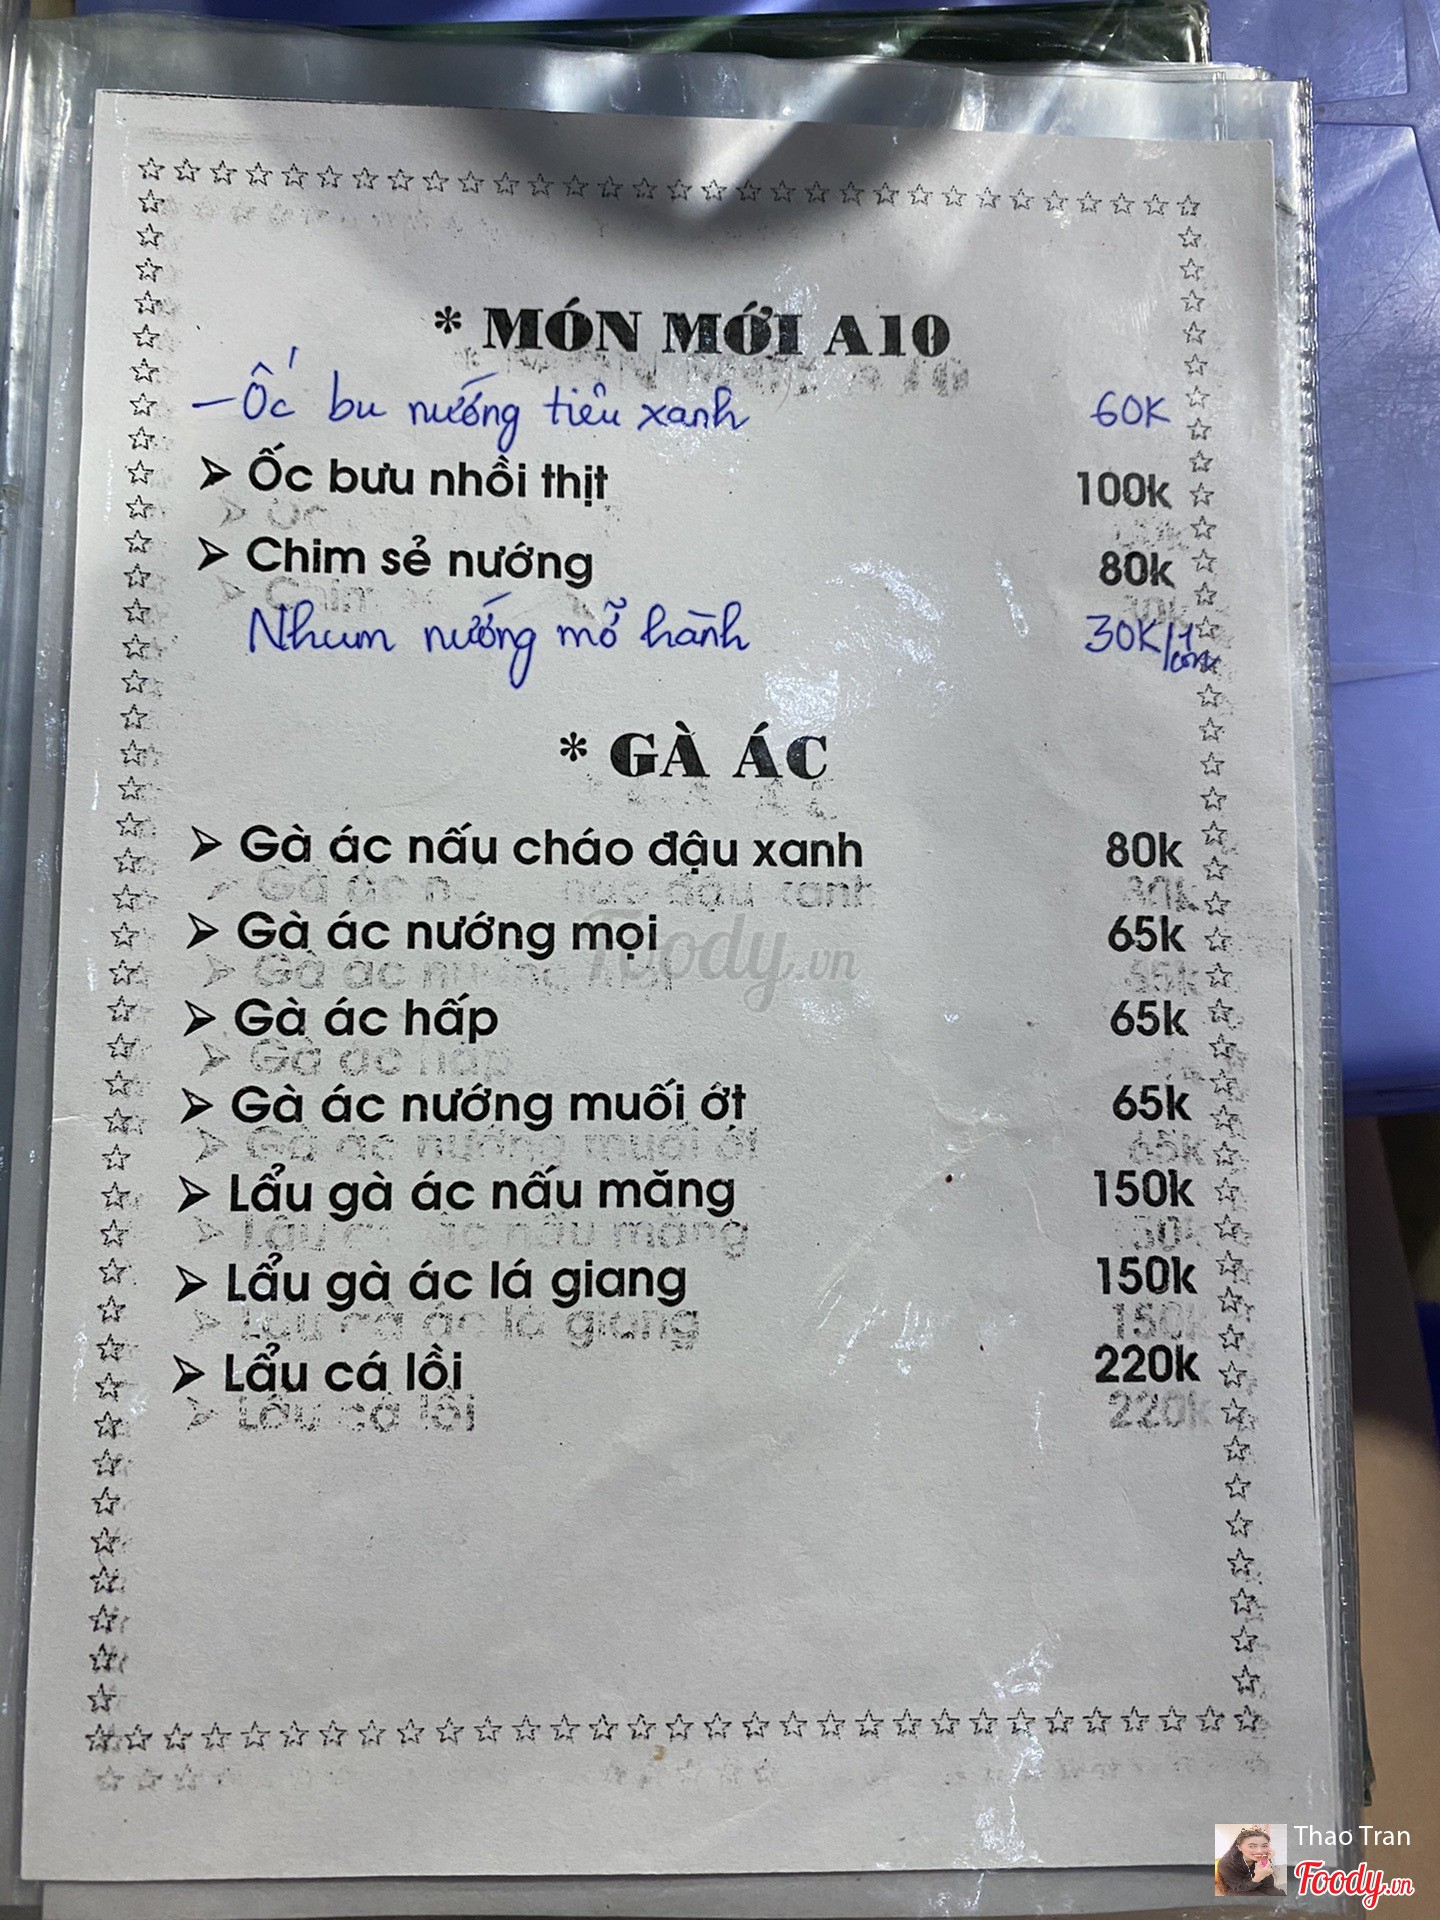 * MÓN MỚI A10
- Ốc bu nướng tiêu xanh 60K
➢ Ốc bưu nhồi thịt 100k
➢ Chim sẻ nướng 80k
Nhum nướng mỡ hành 30K/1con
* GÀ ÁC
➢ Gà ác nấu cháo đậu xanh 80k
➢ Gà ác nướng mọi 65k
➢ Gà ác hấp 65k
➢ Gà ác nướng muối ớt 65k
➢ Lẩu gà ác nấu măng 150k
➢ Lẩu gà ác lá giang 150k
➢ Lẩu cá lồi 220k
Foody.vn
Thao Tran
Foody.vn